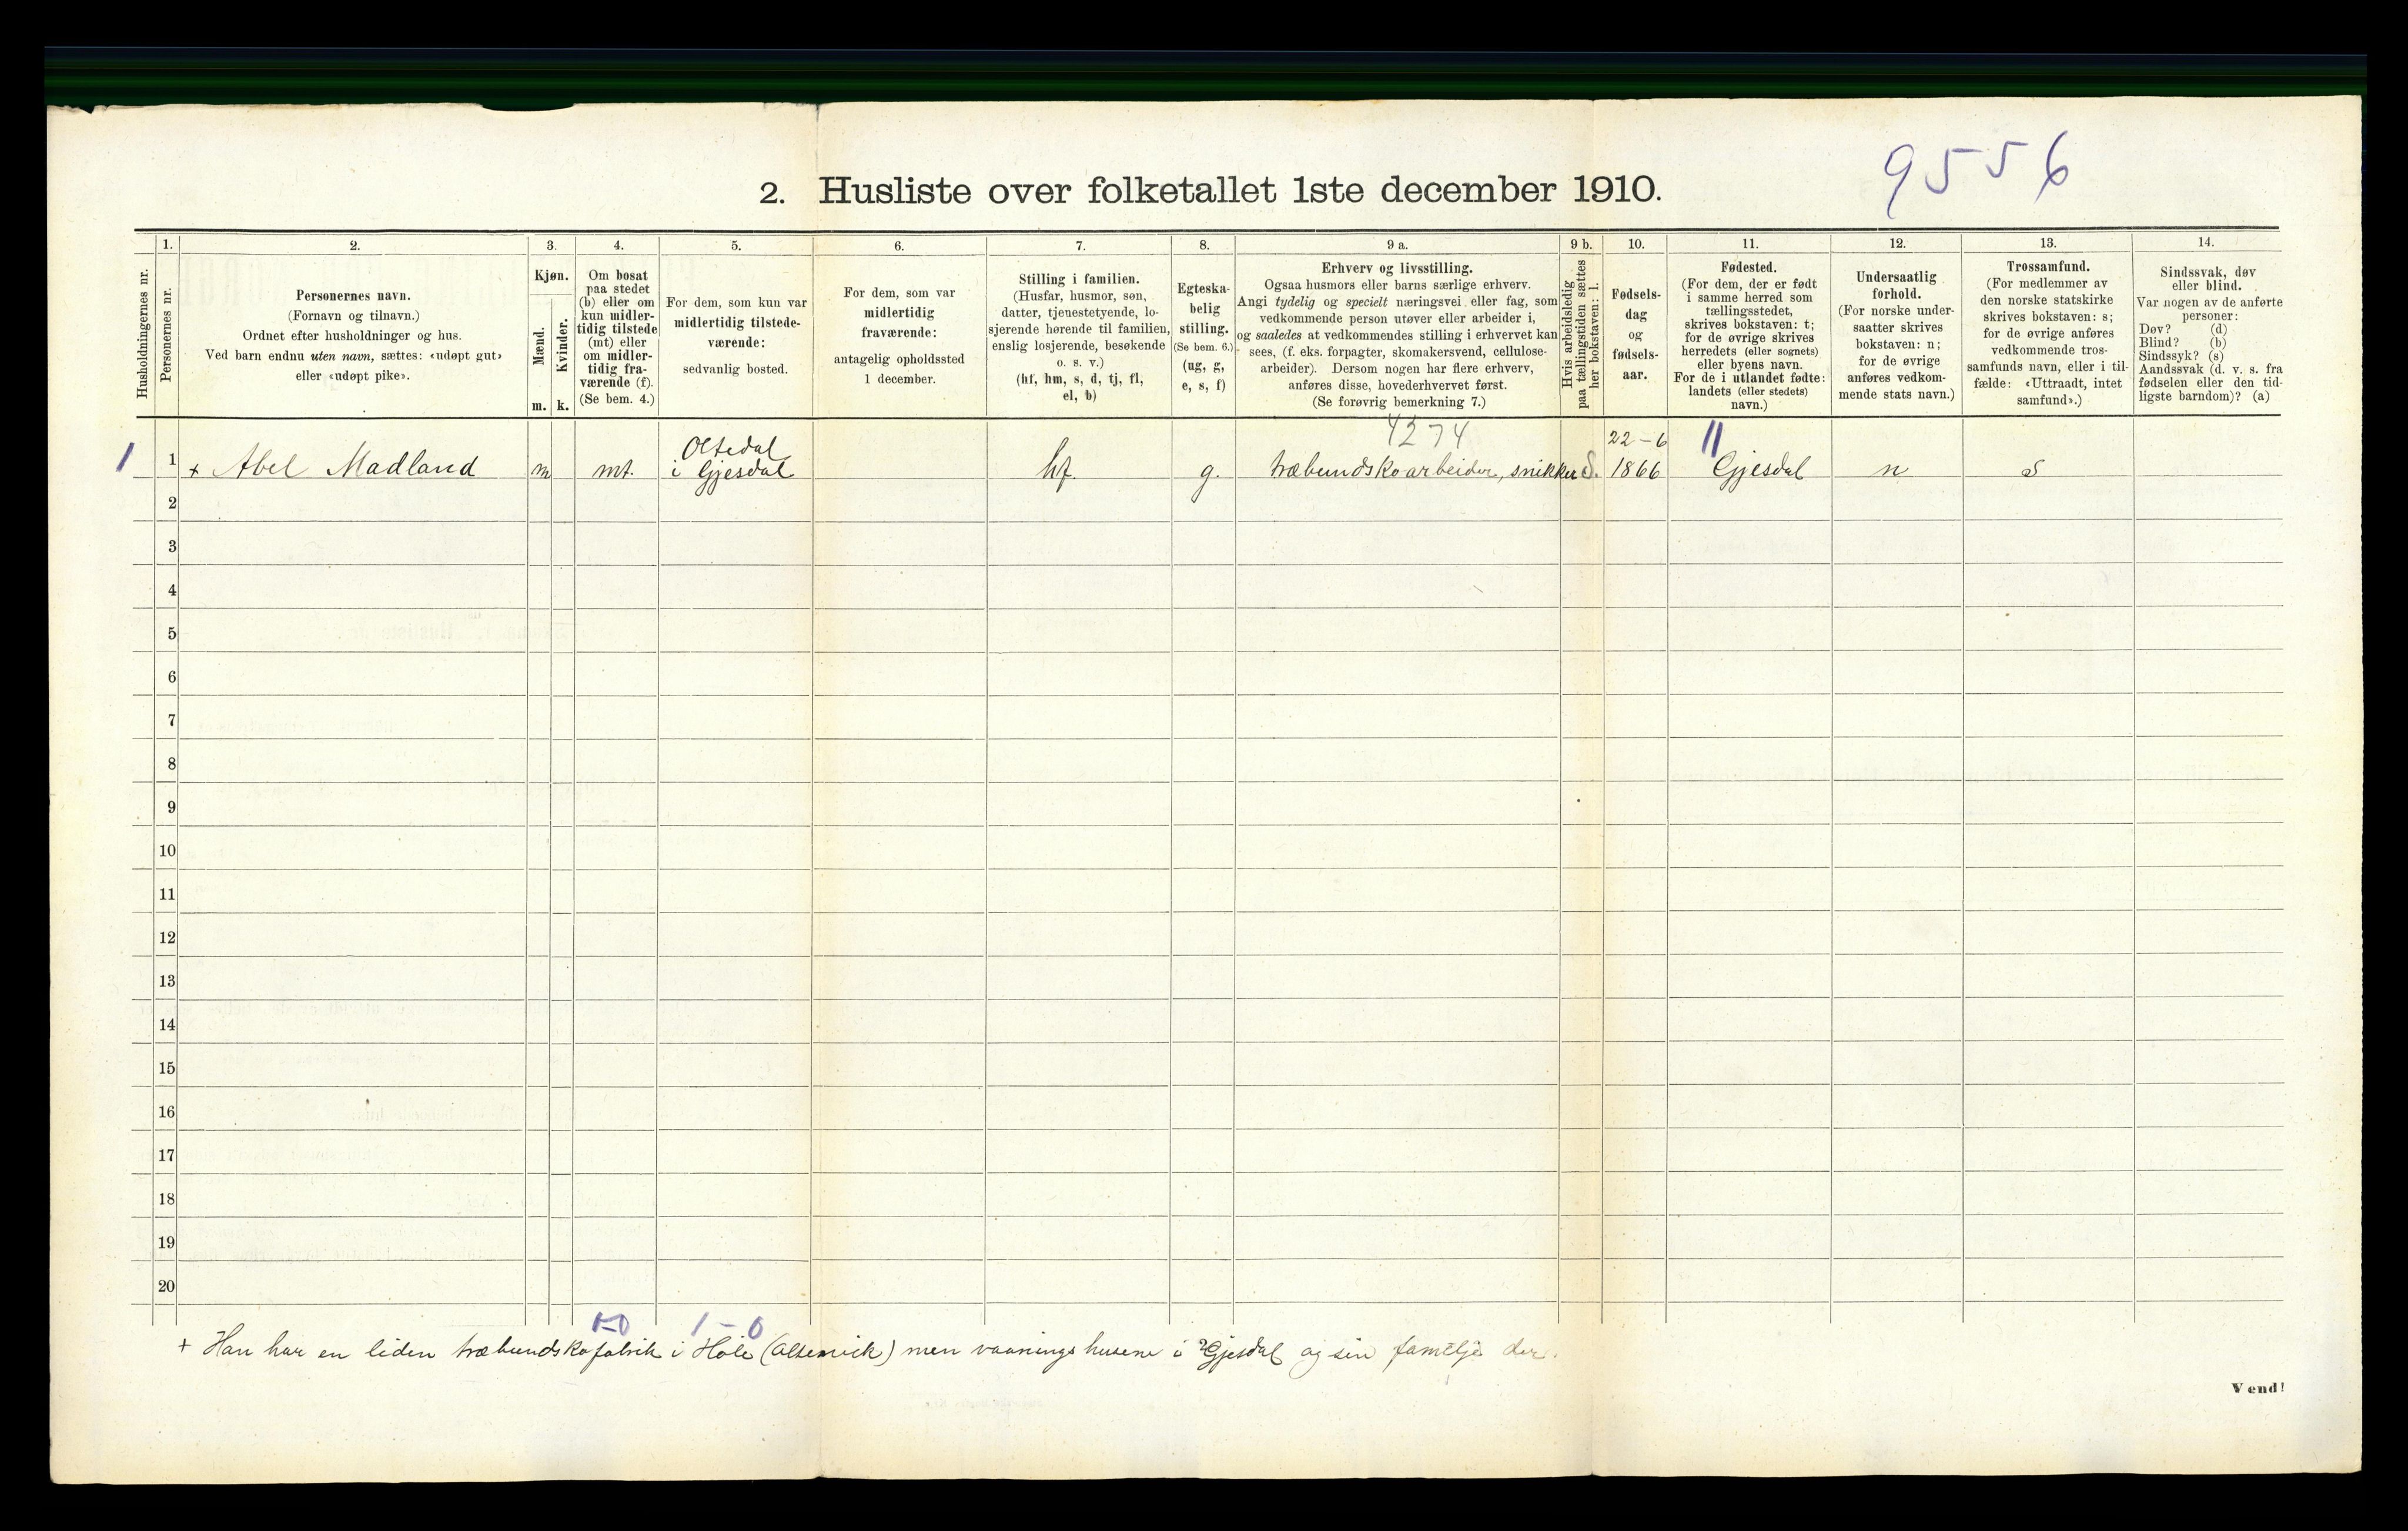 9556
2. Husliste over folketallet 1ste december 1910.
Husholdningernes nr.
1.
Personernes nr.
2.
Personernes navn.
(Fornavn og tilnavn.)
Ordnet efter husholdninger og hus.
Ved barn endnu uten navn, sættes: «udøpt gut»
eller «udøpt pike».
3.
Kjøn.
Mænd.
Kvinder.
m. k.
4.
Om bosat
paa stedet
(b) eller om
kun midler-
tidig tilstede
(mt) eller
om midler-
tidig fra-
værende (f).
(Se bem. 4.)
5.
For dem, som kun var
midlertidig tilstede-
værende:
sedvanlig bosted.
6.
For dem, som var
midlertidig
fraværende:
antagelig opholdssted
1 december.
7.
Stilling i familien.
(Husfar, husmor, søn,
datter, tjenestetyende, lo-
sjerende hørende til familien,
enslig losjerende, besøkende
o. s. v.)
(hf, hm, s, d, tj, fl,
el, b)
8.
Egteska-
belig
stilling.
(Se bem. 6.)
(ug, g,
e, s, f)
9 a.
Erhverv og livsstilling.
Ogsaa husmors eller barns særlige erhverv.
Angi tydelig og specielt næringsvei eller fag, som
vedkommende person utøver eller arbeider i,
og saaledes at vedkommendes stilling i erhvervet kan
sees, (f. eks. forpagter, skomakersvend, cellulose-
arbeider). Dersom nogen har flere erhverv,
anføres disse, hovederhvervet først.
(Se forøvrig bemerkning 7.)
9 b.
Hvis arbeidsledig
paa tællingstiden sættes
her bokstaven: l.
10.
Fødsels-
dag
og
fødsels-
aar.
11.
Fødested.
(For dem, der er født
i samme herred som
tællingsstedet,
skrives bokstaven: t;
for de øvrige skrives
herredets (eller sognets)
eller byens navn.
For de i utlandet fødte:
landets (eller stedets)
navn.)
12.
Undersaatlig
forhold.
(For norske under-
saatter skrives
bokstaven: n;
for de øvrige
anføres vedkom-
mende stats navn.)
13.
Trossamfund.
(For medlemmer av
den norske statskirke
skrives bokstaven: s;
for de øvrige anføres
vedkommende tros-
samfunds navn, eller i til-
fælde: «Uttraadt, intet
samfund».)
14.
Sindssvak, døv
eller blind.
Var nogen av de anførte
personer:
Døv? (d)
Blind? (b)
Sindssyk? (s)
Aandssvak (d. v. s. fra
fødselen eller den tid-
ligste barndom)? (a)
Oltedal 4274 22-6 11
1 1 + Abel Madland m mt. i Gjesdal hf. g. træbundskoarbeider, snikker S. 1866 Gjesdal n s
2
3
4
5
6
7
8
9
10
11
12
13
14
15
16
17
18
19
20
1-0 1-0
+ Han har en liden træbundskofabrik i Høle (Oltesvik) men vaaningshusene i Gjesdal og sin familje der.
Vend!